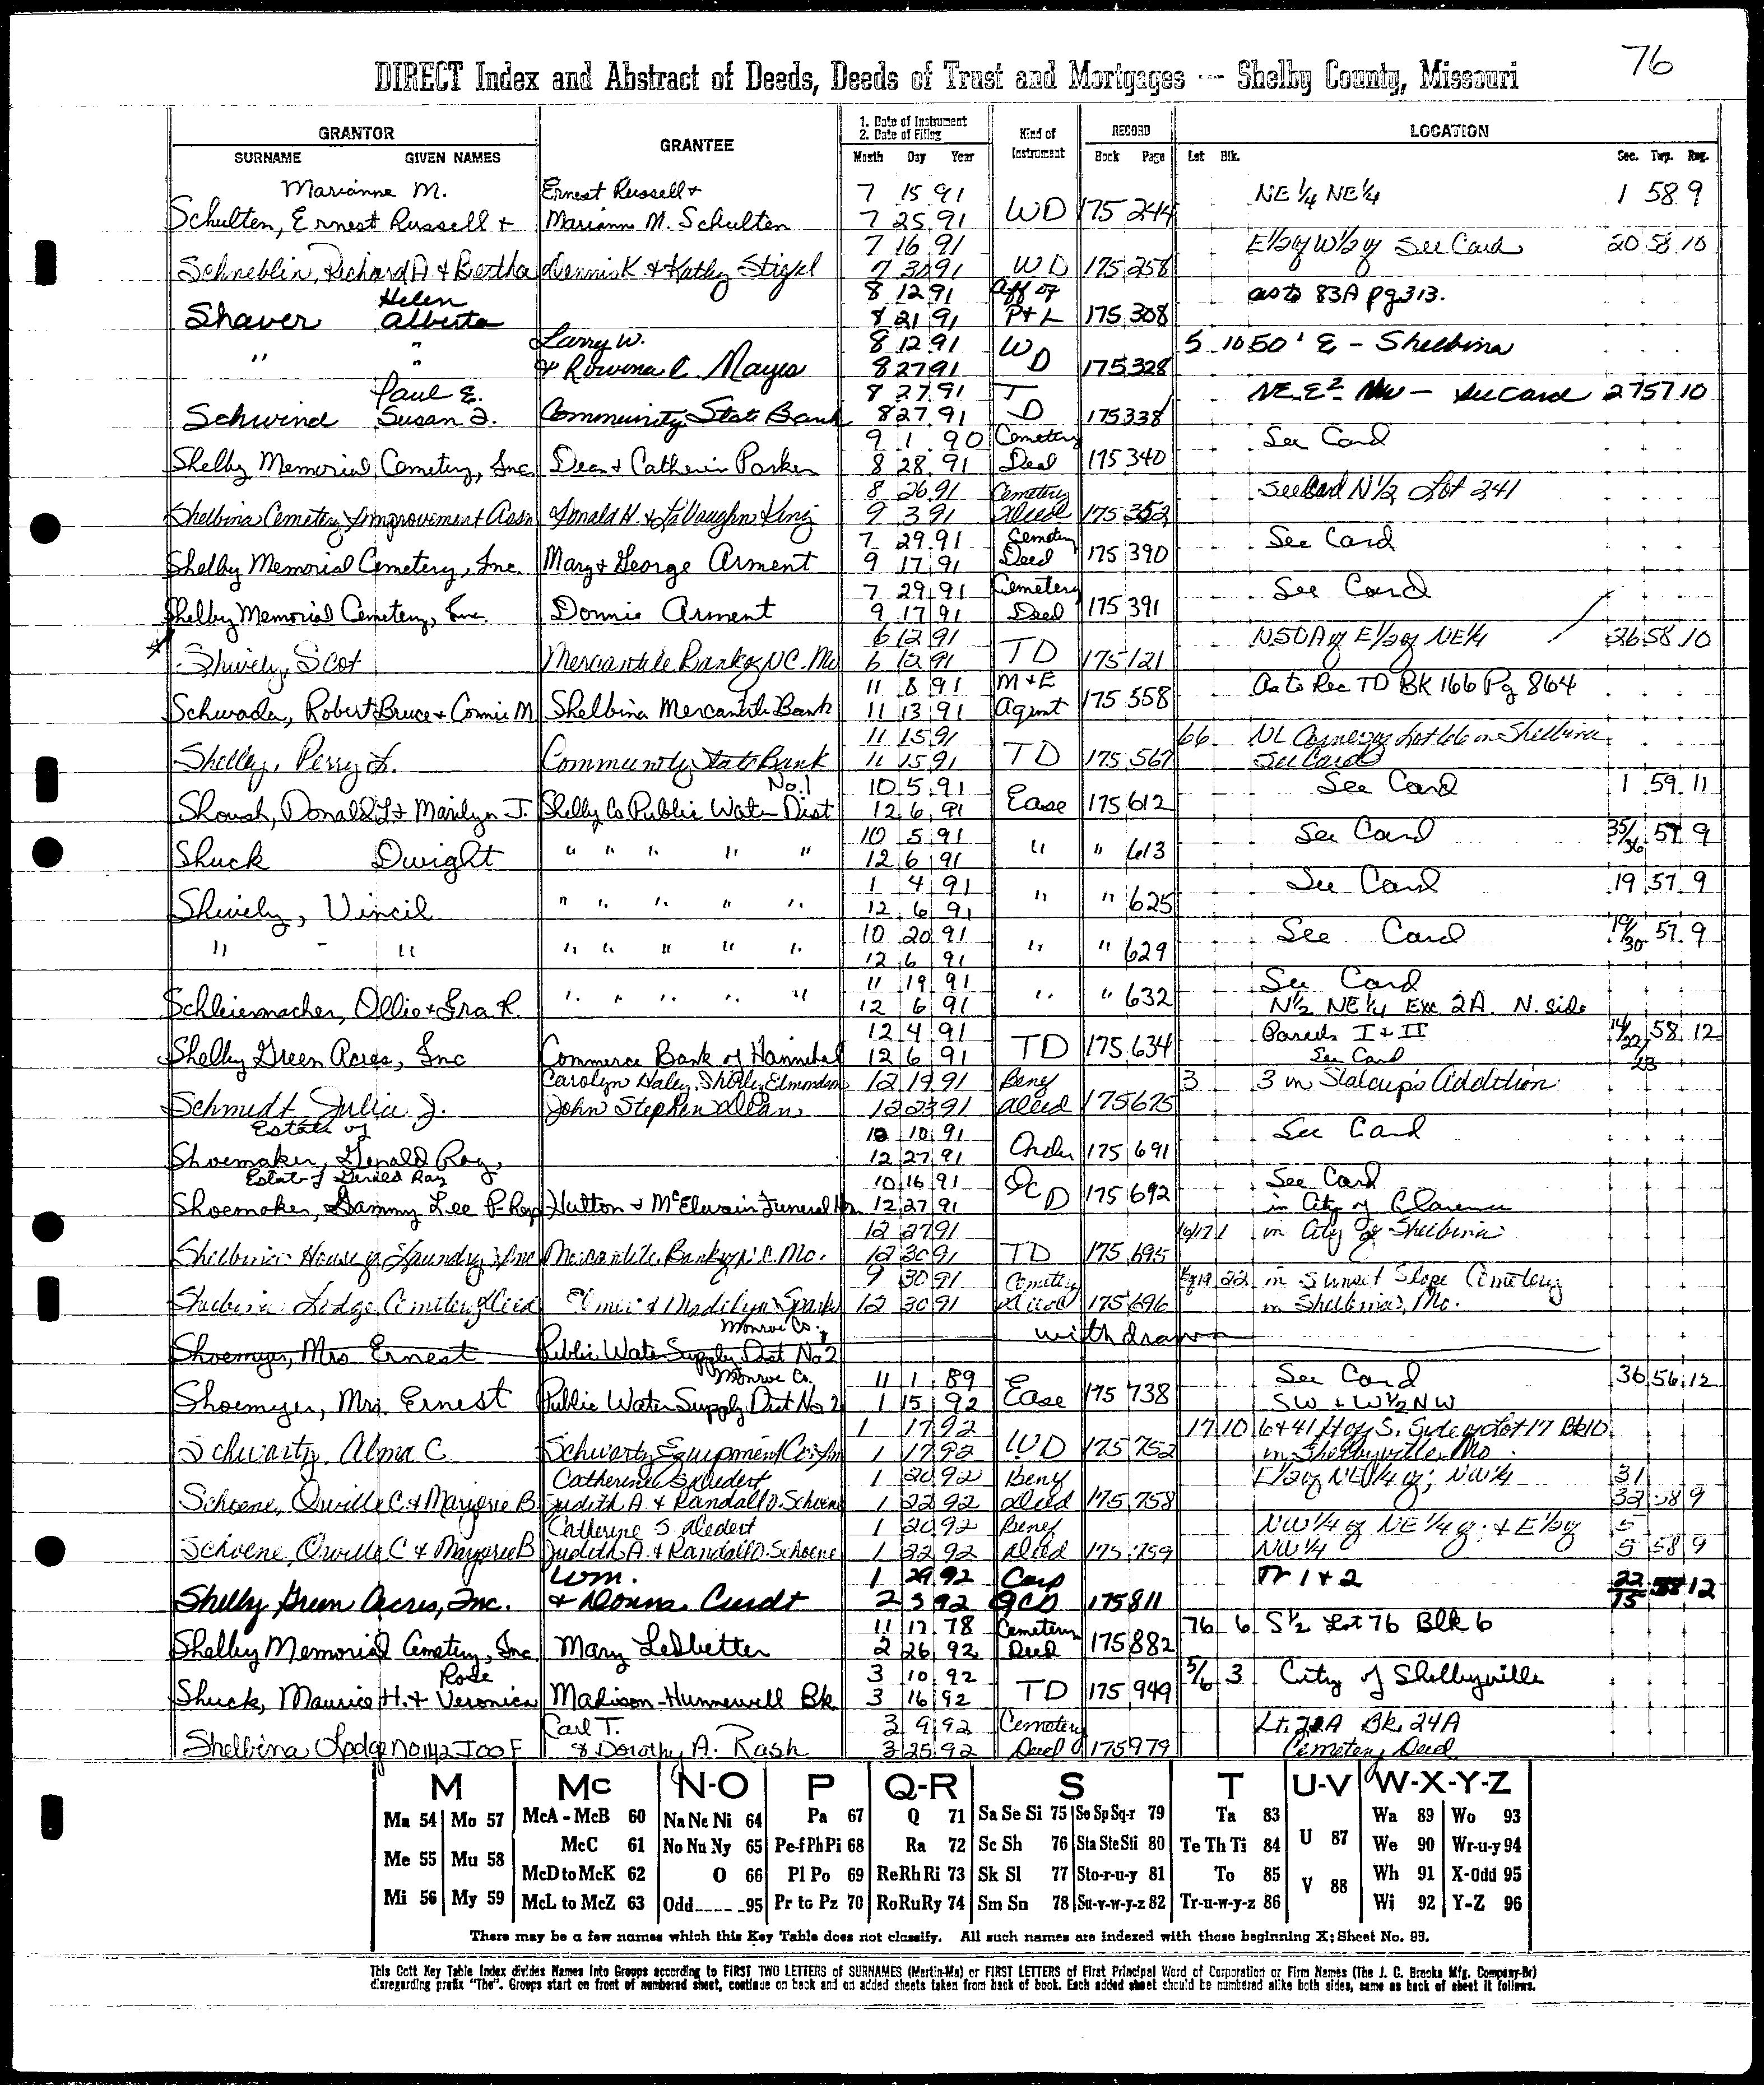 76
DIRECT Index and Abstract of Deeds, Deeds of Trust and Mortgages -- Shelby County, Missouri
GRANTOR
SURNAME GIVEN NAMES
GRANTEE
1. Date of Instrument
2. Date of Filing
Month Day Year
Kind of Instrument
RECORD
Book Page
LOCATION
Lot Blk. Sec. Twp. Rng.
Marianne M. Ernest Russell + 7 15 91 NE 1/4 NE 1/4 1 58 9
Schulten, Ernest Russell + Marianne M. Schulten 7 25 91 WD 175 244
7 16 91 E 1/2 of W 1/2 of See Card 20 58 10
Schneblin, Richard A + Bertha Dennis K + Kathy Stigel 7 30 91 WD 175 258
Helen 8 12 91 Aff of as to 83A pg 313.
Shaver Alberta 8 21 91 P+L 175 308
" " Larry W. 8 12 91 WD 5 10 50' E - Shelbina
+ Rowena C. Mayes 8 27 91 175 328
Paul E. 8 27 91 T NE E² NW - See Card 27 57 10
Schwind Susan J. Community State Bank 8 27 91 D 175 338
9 1 90 Cemetery See Card
Shelby Memorial Cemetery, Inc Dean + Catherin Parker 8 28 91 Deed 175 340
8 26 91 Cemetery See Card N 1/2 Lot 241
Shelbina Cemetery Improvement Assn Donald H. + LaVaughn King 9 3 91 Deed 175 352
7 29 91 Cemetery See Card
Shelby Memorial Cemetery, Inc. Mary + George Arment 9 17 91 Deed 175 390
7 29 91 Cemetery See Card
Shelby Memorial Cemetery, Inc. Donnie Arment 9 17 91 Deed 175 391
6 12 91 N50A of E 1/2 of NE 1/4 26 58 10
Shively, Scot Mercantile Bank of NC. Mo 6 12 91 TD 175 121
11 8 91 M+E As to Rec TD BK 166 Pg 864
Schwada, Robert Bruce + Connie M Shelbina Mercantile Bank 11 13 91 Agmt 175 558
11 15 91 66 NL Corner of Lot 66 in Shelbina
Shelley, Perry L. Community State Bank 11 15 91 TD 175 567 See Card
No. 1 10 5 91 See Card 1 59 11
Shoush, Donald L + Marilyn J. Shelby Co Public Water Dist 12 6 91 Ease 175 612
10 5 91 See Card 35/36 57 9
Shuck Dwight " " " " " 12 6 91 " " 613
1 4 91 See Card 19 57 9
Shively, Vincil " " " " " 12 6 91 " " 625
10 20 91 See Card 19/30 57 9
" " " " " " " 12 6 91 " " 629
11 19 91 See Card
Schleiermacher, Ollie + Ira R. " " " " " 12 6 91 " " 632 N 1/2 NE 1/4 Exc 2A. N. side
12 4 91 Parcels I + II 14/22/23 58 12
Shelby Green Acres, Inc Commerce Bank of Hannibal 12 6 91 TD 175 634 See Card
Carolyn Haley, Shirley Edmondson 12 19 91 Beny 3 3 in Stalcup's Addition
Schmidt Julia J. John Stephen Dean 12 23 91 Deed 175 675
Estate of 12 10 91 See Card
Shoemaker, Gerald Ray, 12 27 91 Order 175 691
Estate of Gerald Ray 10 16 91 See Card
Shoemaker, Sammy Lee P-Rep Hutton + McElwain Funeral Hm. 12 27 91 QCD 175 692 in City of Clarence
12 27 91 in City of Shelbina
Shelbina House of Laundry, Inc Mercantile Bank of N.C. Mo. 12 30 91 TD 175 695
9 30 91 Cemetery 22 in Sunset Slope Cemetery
Shelbina Lodge Cemetery Deed Elmer + Madilyn Sparks 12 30 91 Deed 175 696 in Shelbina, Mo.
Monroe Co. withdrawn
Shoemyer, Mrs Ernest Public Water Supply Dist No 2
Monroe Co. 11 1 89 See Card 36 56 12
Shoemyer, Mrs. Ernest Public Water Supply Dist No 2 1 15 92 Ease 175 738 SW + W 1/2 NW
1 17 92 17 10 6+41 ft of S. Side of Lot 17 Bk 10
Schwartz, Alma C Schwartz Equipment Co 1 17 92 WD 175 752 in Shelbyville, Mo.
Catherine S. Dedert 1 20 92 Beny E 1/2 of NE 1/4 of; NW 1/4 31
Schoene, Orville C + Marjorie B Judith A. + Randall O. Schoene 1 22 92 Deed 175 758 32 58 9
Catheryne S. Dedert 1 20 92 Beny NW 1/4 of NE 1/4 of; + E 1/2 of 5
Schoene, Orville C + Marjorie B Judith A. + Randall O. Schoene 1 22 92 Deed 175 759 NW 1/4 5 58 9
Wm. 1 29 92 Corp Tr 1 + 2 22/15 58 12
Shelby Green Acres, Inc. + Donna Curdt 2 3 92 QCD 175 811
11 17 78 Cemetery 76 6 S 1/2 Lot 76 Blk 6
Shelby Memorial Cemetery, Inc Mary Ledbetter 2 26 92 Deed 175 882
Rose 3 10 92 5/6 3 City of Shelbyville
Shuck, Maurice H. + Veronica Madison-Hunnewell Bk 3 16 92 TD 175 949
Carl T. 3 9 92 Cemetery Lt. 22A Bk. 24A
Shelbina Lodge No 142 IOOF & Dorothy A. Rash 3 25 92 Deed 175 979 Cemetery Deed
M Mc N-O P Q-R S T U-V W-X-Y-Z
Ma 54 Mo 57 McA - McB 60 Na Ne Ni 64 Pa 67 Q 71 Sa Se Si 75 So Sp Sq-r 79 Ta 83 U 87 Wa 89 Wo 93
Me 55 Mu 58 McC 61 No Nu Ny 65 Pe-f Ph Pi 68 Ra 72 Sc Sh 76 Sta Ste Sti 80 Te Th Ti 84 We 90 Wr-u-y 94
McD to McK 62 O 66 Pl Po 69 Re Rh Ri 73 Sk Sl 77 Sto-r-u-y 81 To 85 V 88 Wh 91 X-Odd 95
Mi 56 My 59 McL to McZ 63 Odd 95 Pr to Pz 70 Ro Ru Ry 74 Sm Sn 78 Su-v-w-y-z 82 Tr-u-w-y-z 86 Wi 92 Y-Z 96
There may be a few names which this Key Table does not classify. All such names are indexed with those beginning X; Sheet No. 95.
This Cott Key Table Index divides Names Into Groups according to FIRST TWO LETTERS of SURNAMES (Martin-Ma) or FIRST LETTERS of First Principal Word of Corporation or Firm Names (The J. C. Brooks Mfg. Company-Br)
disregarding prefix "The". Groups start on front of numbered sheet, continue on back and on added sheets taken from back of book. Each added sheet should be numbered alike both sides, same as back of sheet it follows.